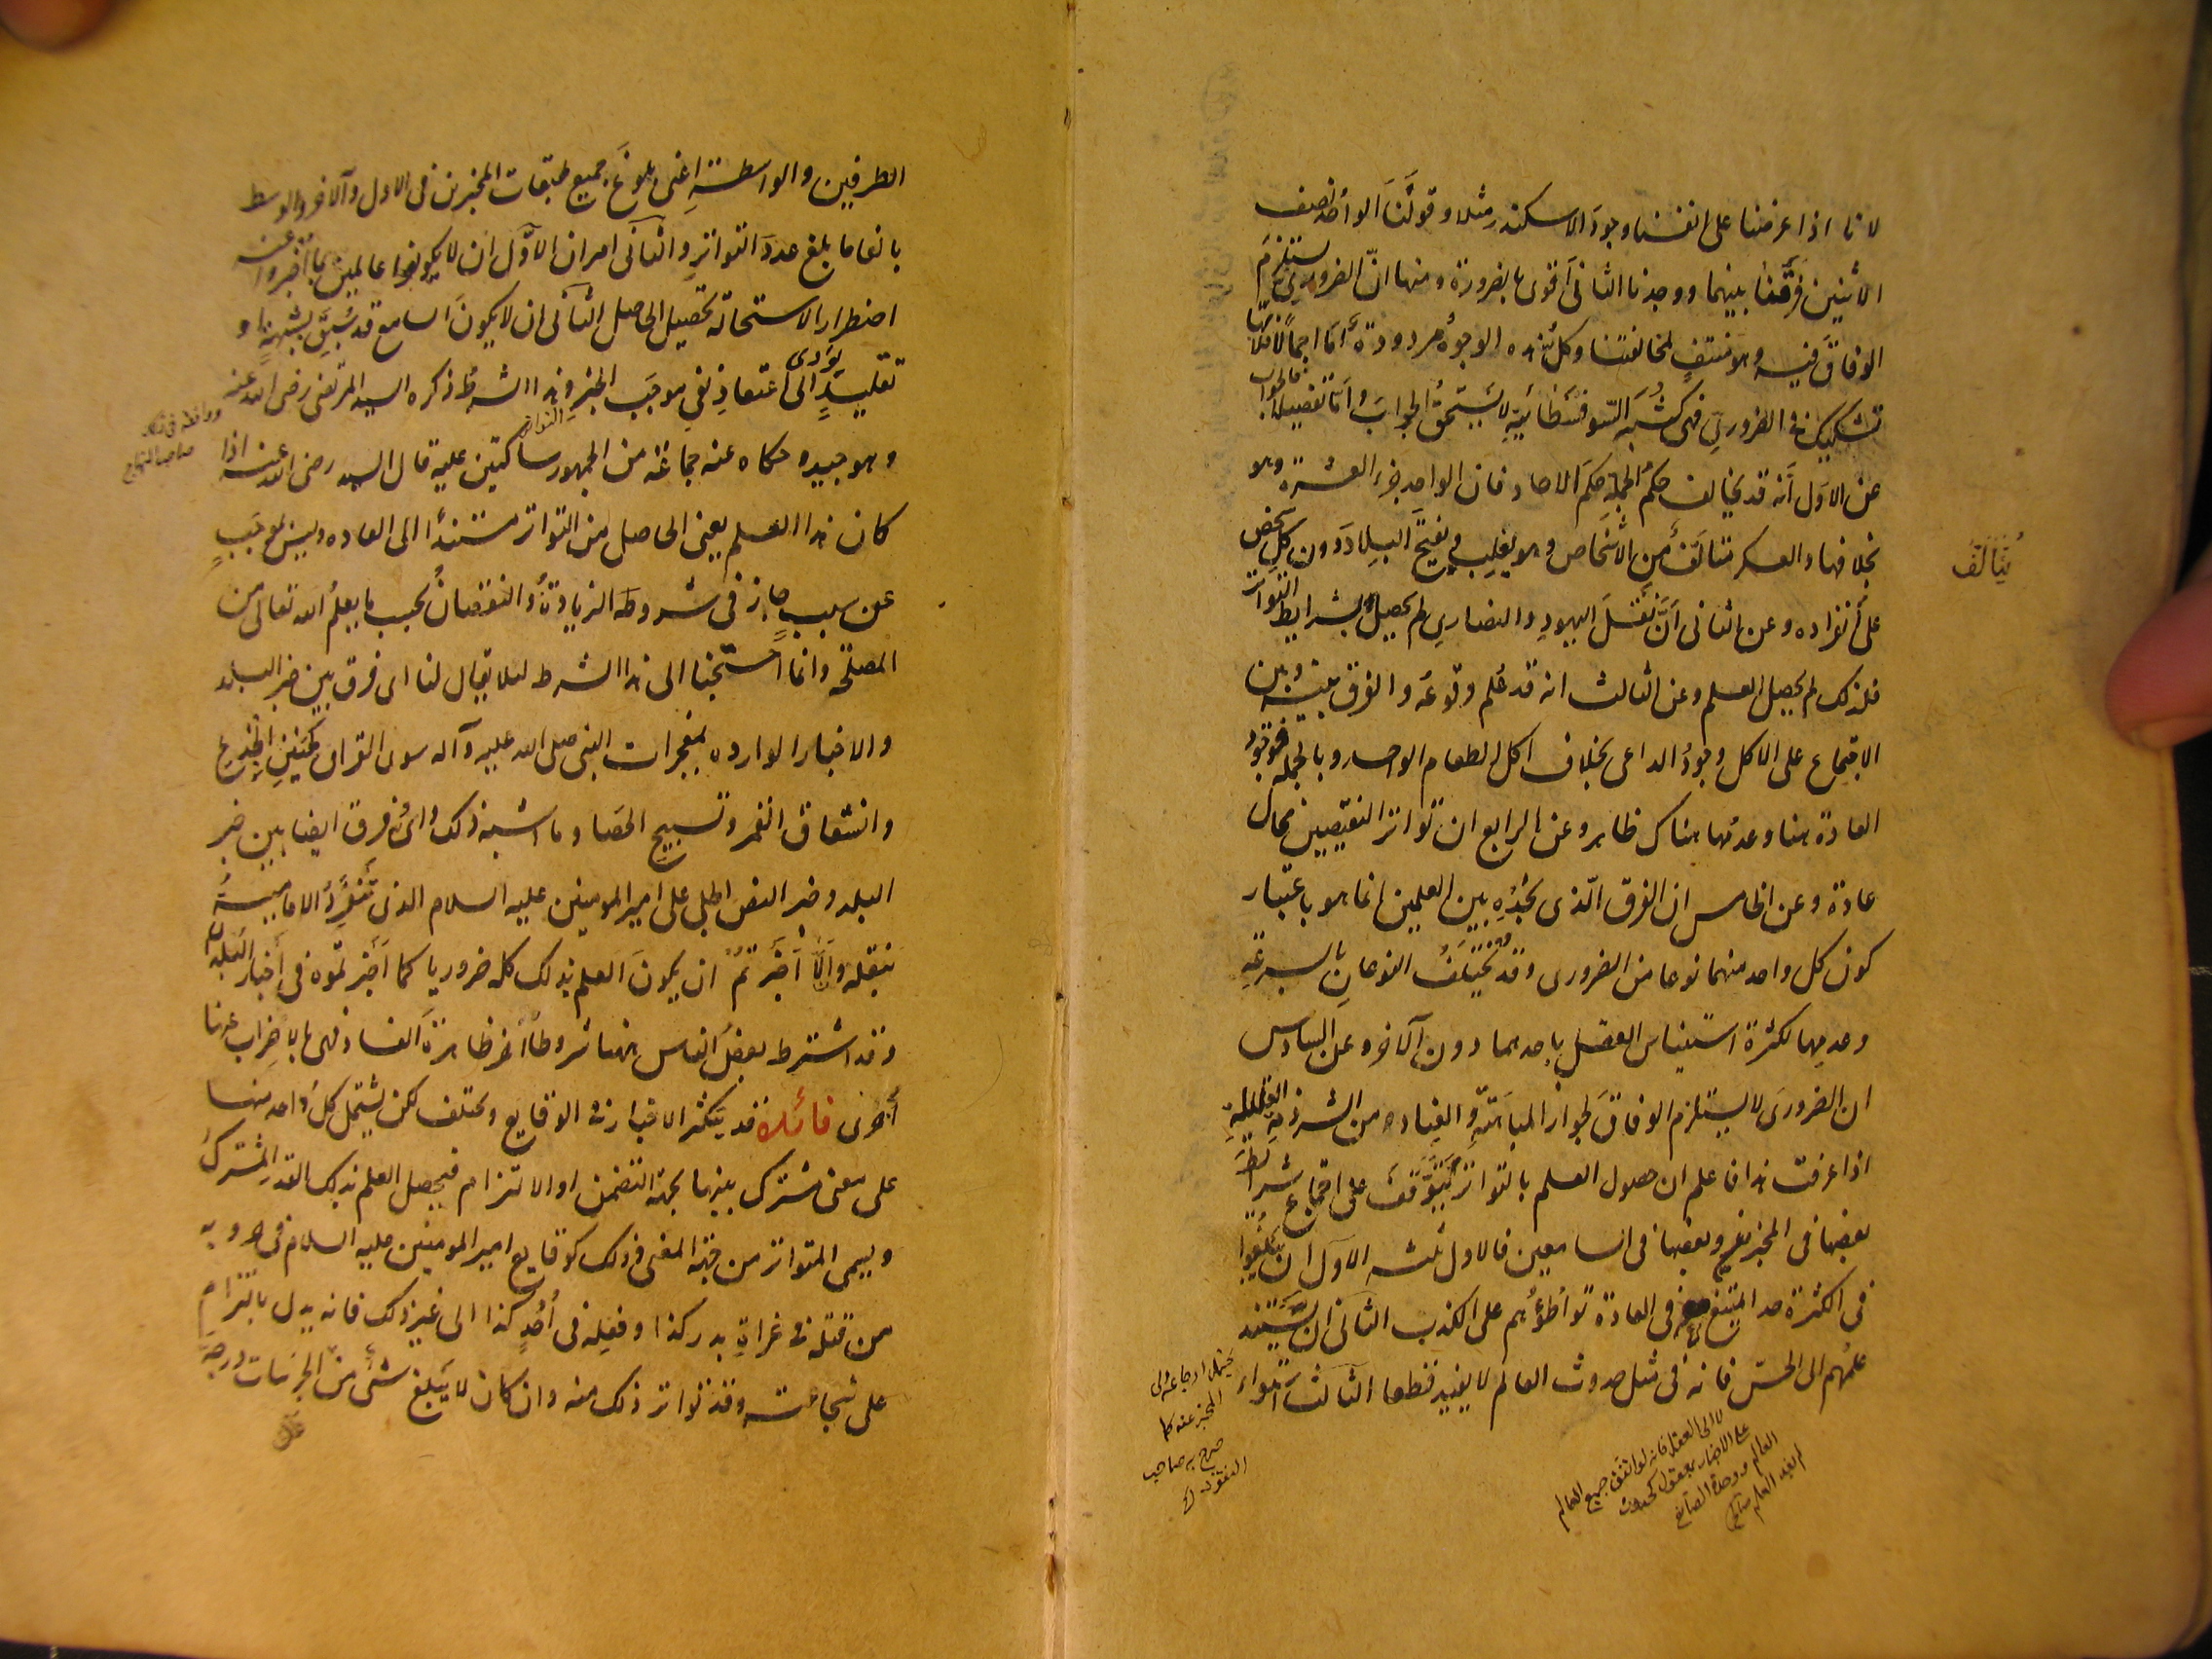 لانا اذا عرضنا على انفسنا وجودَ الاسكندر مثلا وقولَنا الواحد نصف
الاثنين فَرَّقنا بينهما ووجدنا الثانى اقوى بالضرورة ومنها انّ الضرورى يستلزم
الوفاقَ فيه وهو منتفٍ لمخالفتنا وكلُّ هذه الوجوهُ مردودةٌ أمّا اجمالًا فلانّها
تشكيك فى الضرورىِّ فهى كشُبَه السّوفسطائيّة لا يستحقُّ الجوابَ وامّا تفصيلًا فالجواب
عن الاول أنّه قد يخالف حكمُ الجملةِ حكمَ الآحاد فان الواحد جزء العشرة وهو
بخلافها والعسكر متألّفٌ من الاشخاص وهو يغلِب ويفتحُ البلادَ دون كلِّ شخصٍ
يُتألَّفُ
على انفراده وعن الثانى أنَّ نقلَ اليهودِ والنصارى لم يحصل بشرايط التواتر
فلذلك لم يحصل العلم وعن الثالث انه قد عُلم وقوعُه والفرق بينه وبين
الاجتماع على الاكل وجودُ الداعى بخلاف اكل الطعام الواحد وبالجمله فوجود
العادة هنا وعدمُها هناك ظاهر وعن الرابع ان تواتر النقيضين محال
عادة وعن الخامس ان الفرق الّذى نجده بين العلمين انما هو باعتبار
كون كل واحد منهما نوعا من الضرورى وقد يختلفُ النوعانِ بالسرعةِ
وعدمِها لكثرة استيناس العقل باحدهما دون الآخر وعن السادس
ان الضرورىَ لا يستلزم الوفاقَ لجواز المباهتةِ والعِناد من الشرذمة القليلةِ
اذا عرفت هذا فاعلم ان حصول العلم بالتواتر يتوقّفُ على اجتماع شرايطَ
بعضها فى المخبرين وبعضها فى السامعين فالاول ثلثه الاول ان يبلُغوا
فى الكثرة حدا يمتنع معه فى العادة تواطؤُهم على الكذب الثانى ان يستند
علمُهم الى الحسّ فانه فى مثل حدوث العالم لا يفيد قطعا الثالث استواء
لا الى العقل فانه لو اتفق جميع العالم
على الاخبار بمعقول كحدوث
العالم ووحدة الصانع
لم يفد العلم
يحتمل ارجاعه الى
المخبر عنه كما
صرح به صاحب
الطرفين والواسطةِ اعنى بلوغَ جميع طبقات المخبرين فى الاول والآخر والوسط
بالغا ما بلغ عددَ التواتر والثانى امران الاوّل ان لا يكونوا عالمين بما اخبروا عنه
اضطرارا لاستحالة تحصيل الحاصل الثانى ان لا يكونَ السامع قد سُبِقَ بشبهةٍ او
تقليدٍ يؤدى الى اعتقادِ نفىِ موجَب الخبر وهذا الشرطُ ذكره السيد المرتضى رضى الله عنه
وهو جيد وحكاه عنه جماعة من الجمهور ساكتين عليه قال السيد رضى الله عنه اذا
كان هذا العلم يعنى الحاصل من التواتر مستندًا الى العاده وليس بموجَبٍ
عن سببٍ جاز فى شروطه الزيادةُ والنقصانُ بحسب ما يعلمُ الله تعالى من
المصلحة وانما احتجنا الى هذا الشرط لئلا يقال لنا اى فرق بين خبر البلد
والاخبار الوارده بمعجزات النبى صلى الله عليه وآله سوى القران كحنينِ الجِذعِ
وانشقاق القمر وتسبيح الحَصا وما اشبه ذلك واىُّ فرق ايضا بين خبر
البلد وخبر النص الجلى على امير المومنين عليه السلام الذى تَنفَرَّدُ الاماميةُ
بنقله والّا اَجَزتُم ان يكونَ العلم بذلك كله ضروريا كما اَجزتموه فى أخبار البُلدان
وقد اشترط بعضُ الناس هنا شروطًا اخَر ظاهرةَ الفساد فهى بالاضرابِ عنها
أحرى فائدة قد يتكثر الاخبار فى الوقايع ويختلف لكن يشتمل كلُّ واحد منها
على معنى مشترك بينها بجهة التضمن او الالتزام فيحصل العلم بذلك القدرِ المشترك
ويسمى المتواتر من جهة المعنى وذلك كوقايع امير المومنين عليه السلام فى حروبه
من قتله فى غزاةِ بدر كذا وفعلِه فى أُحُدٍ كذا الى غير ذلك فانه يدل بالتزام
على شجاعته وقد تواتر ذلك منه وان كان لا يَبلغُ شئٌ من الجزئيات درجةَ
ووافقه فى ذلك
صاحب النهاج
التواتر